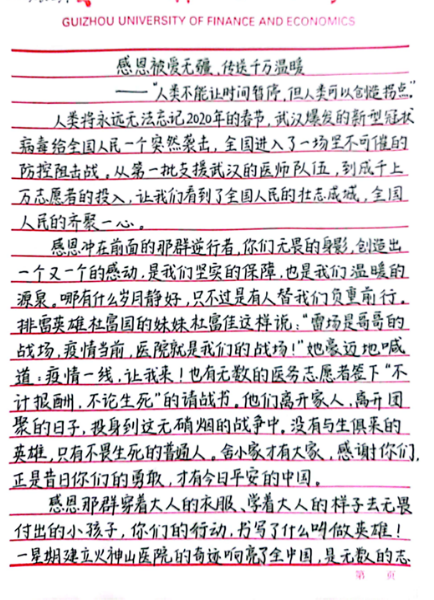 GUIZHOU UNIVERSITY OF FINANCE AND ECONOMICS
感恩被爱无疆,传送千万温暖
——“人类不能让时间暂停,但人类可以创造拐点”
人类将永远无法忘记2020年的春节,武汉爆发的新型冠状
病毒给全国人民一个突然袭击,全国进入了一场坚不可摧的
防控阻击战。从第一批支援武汉的医师队伍,到成千上
万志愿者的投入,让我们看到了全国人民的壮志成城,全国
人民的齐聚一心。
感恩冲在前面的那群逆行者,你们无畏的身影,创造出
一个又一个的感动,是我们坚实的保障,也是我们温暖的
源泉。哪有什么岁月静好,只不过是有人替我们负重前行。
排雷英雄杜富国的妹妹杜富佳这样说:“雷场是哥哥的
战场,疫情当前,医院就是我们的战场!”她豪迈地喊
道:疫情一线,让我来!也有无数的医务志愿者签下“不
计报酬,不论生死”的请战书。他们离开家人,离开团
聚的日子,投身到这无硝烟的战争中。没有与生俱来的
英雄,只有不畏生死的普通人。舍小家才有大家,感谢你们,
正是昔日你们的勇敢,才有今日平安的中国。
感恩那群穿着大人的衣服、学着大人的样子去无畏
付出的小孩子,你们的行动,书写了什么叫做英雄!
一星期建立火神山医院的奇迹响亮了全中国,是无数的志
第 页